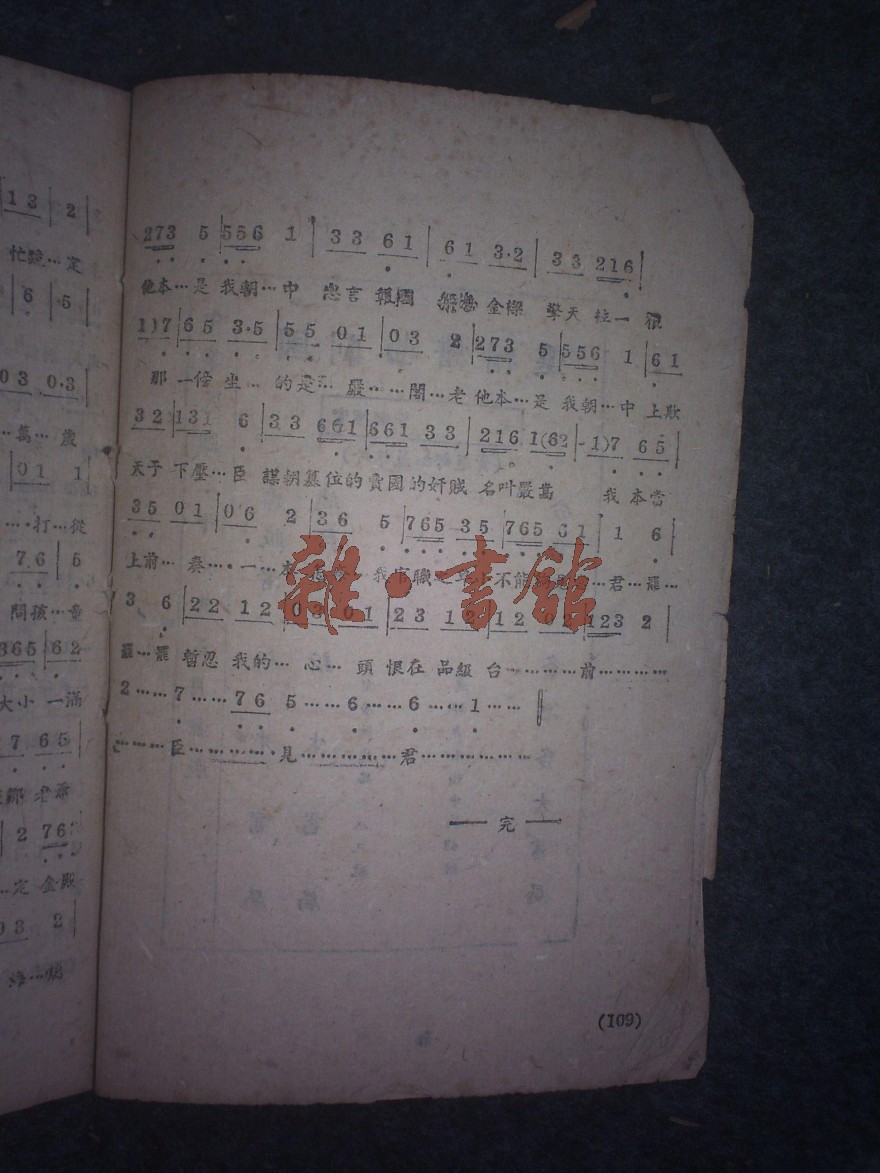 13 | 2
忙跪…定
6 | ·5 |
03 0·3 |
…萬…歲
| 01 1 |
…·打…從
76 | 5
問孩…童
365 | 62
大小一滿
7 65 |
鄒老爺
| 2 76 |
…定金殿
03 2 |
273 5 | 556 1 | 33 61 | 61 3·2 | 33 216 |
他本…是我朝…中 忠言報國 金樑 擎天柱一根
1)7 | 65 3·5 | 55 01 | 03 2 | 273 5 | 556 1 | 61
那一傍坐…的是…嚴……閣…老他本…是我朝…中上欺
32 | 131 6 | 33 661 | 661 33 | 216 1(62 | -1)7 65 |
天子下壓…臣謀朝篡位的賣國的奸賊名叫嚴嵩 我本當
35 01 | 06 2 | 36 5 | 765 35 | 765 61 | 1 6 |
上前…奏…·一…本 我官職 不能 …君…罷…
3 6 | 22 12 | 03 01 | 23 12 | 12 02 | 123 2 |
罷…罷暫忍我的…心…頭恨在品級台………前…………
2…… 7…… 76 5…… 6…… 6…… 1…… ‖
………臣……………見……………君………………
—— 完 ——
(109)
雜·書館